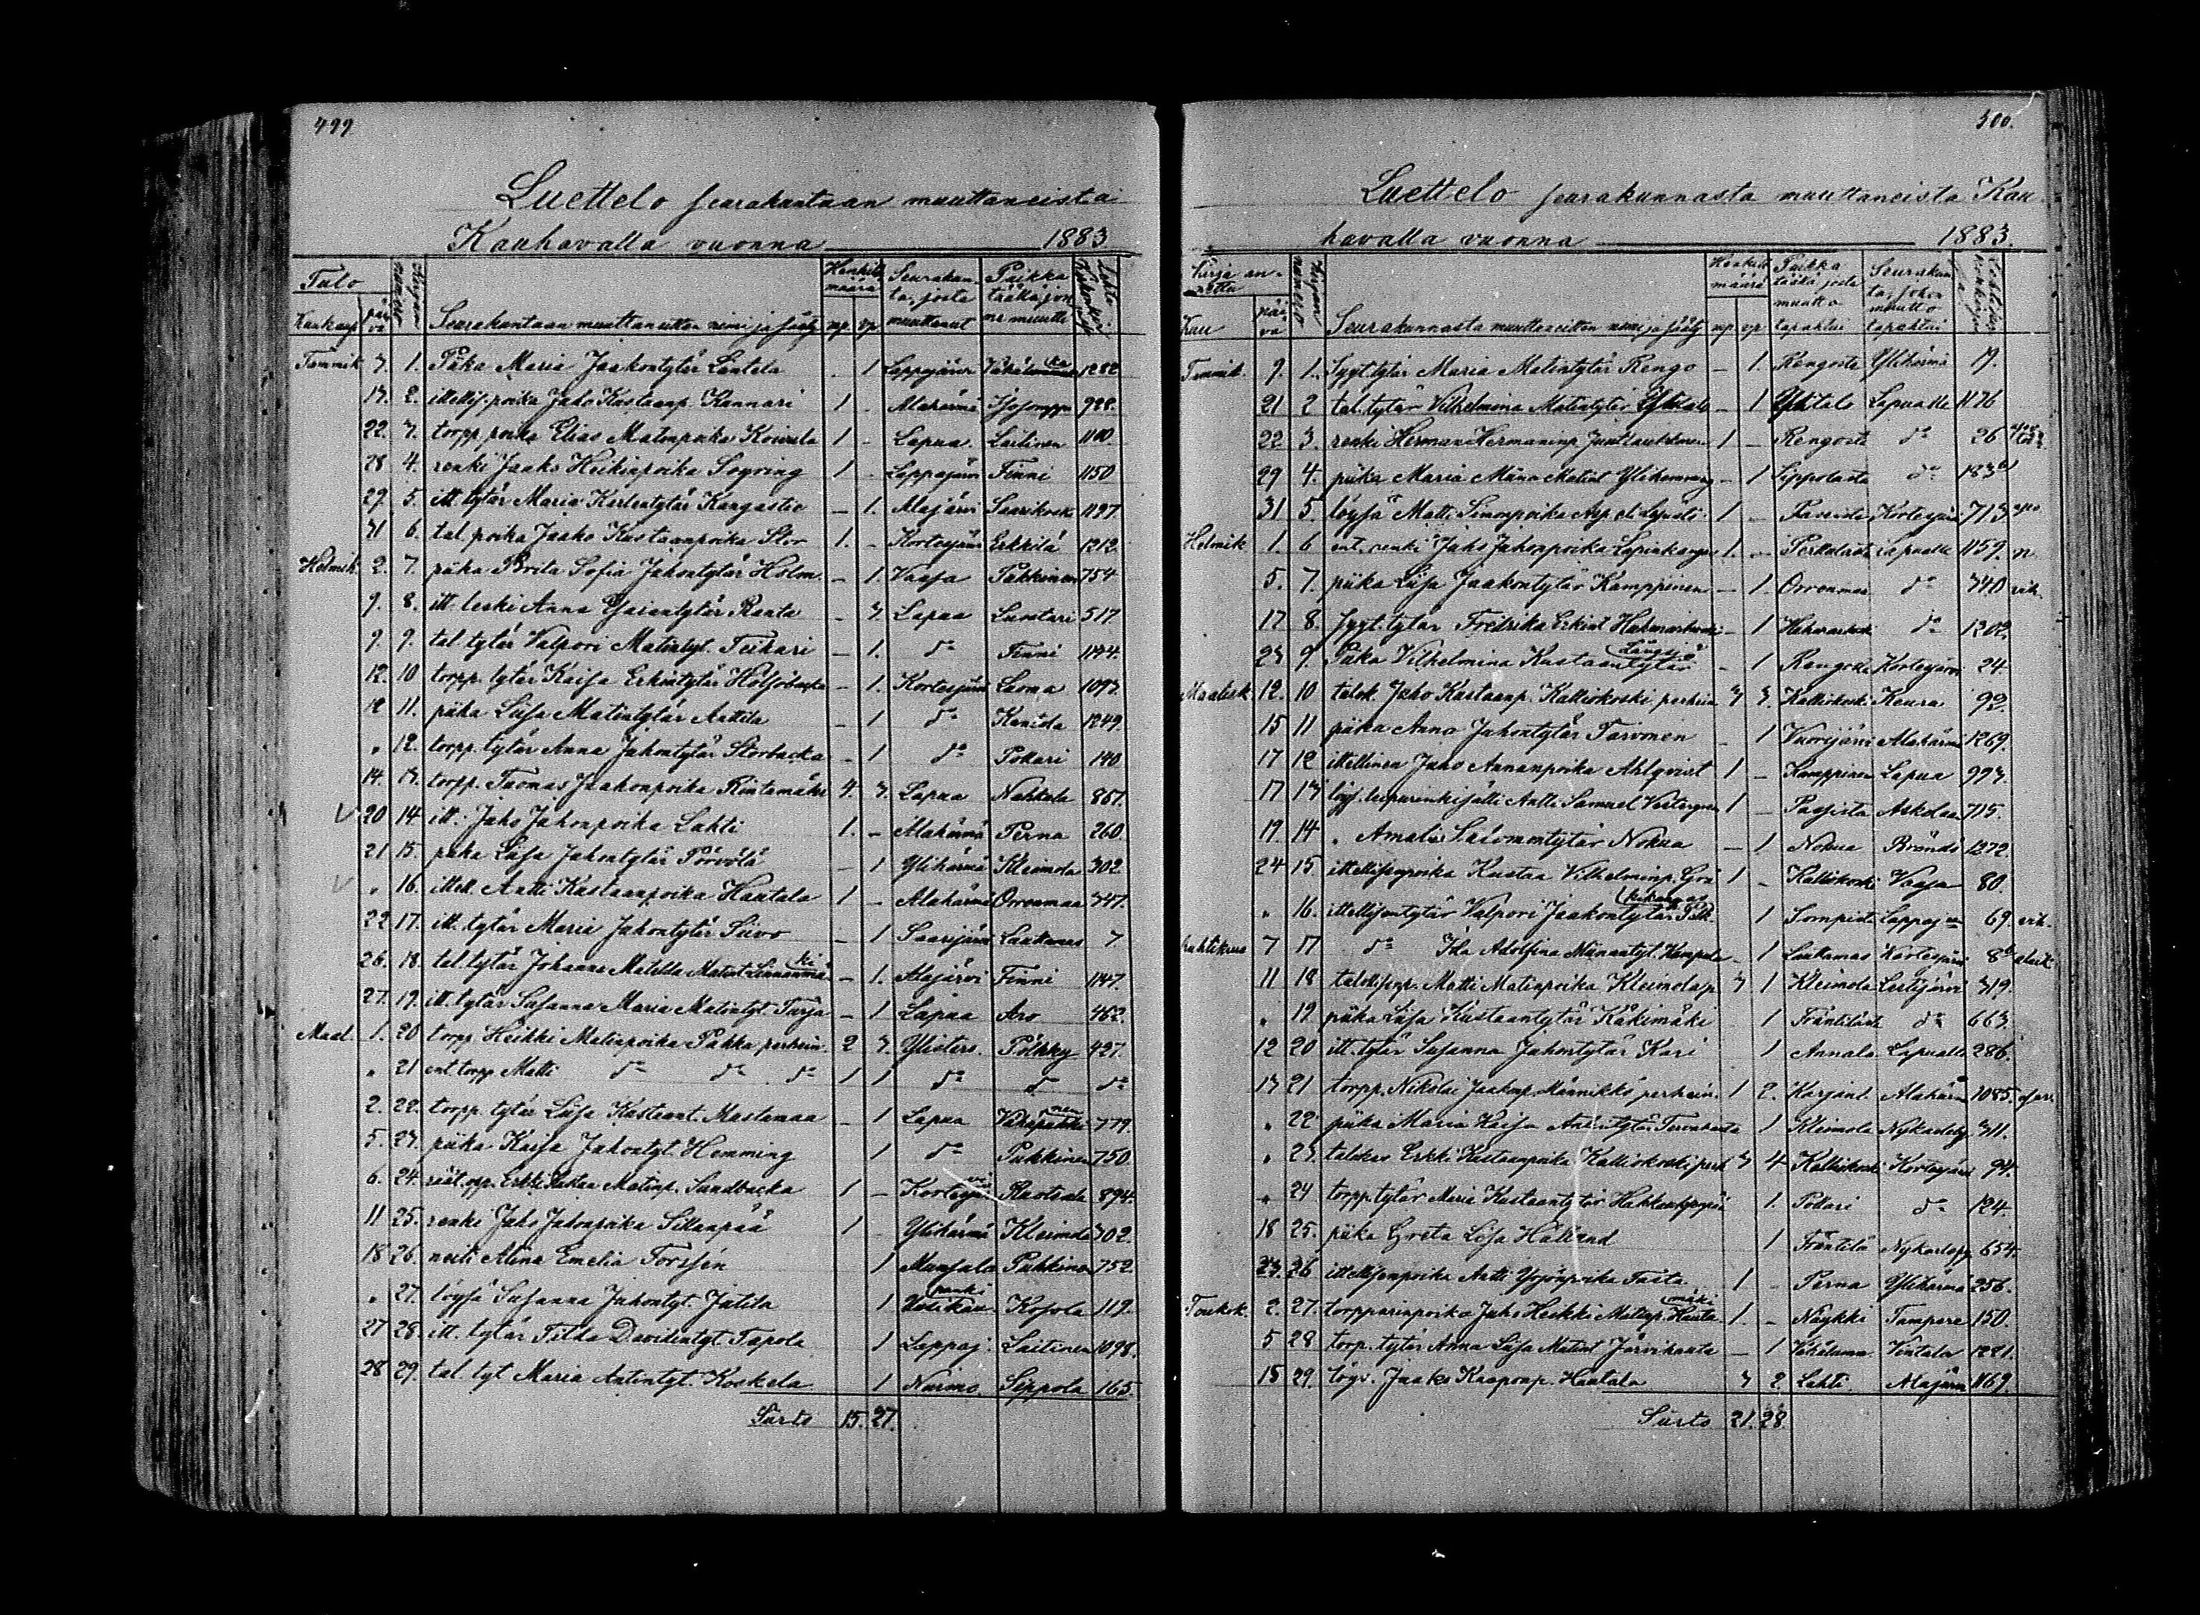 499
Luettelo seurakuntaan muuttaneista
Kauhavalla vuonna 1883
Tulo
Henkilö määrä
Seurakunta, josta muuttanut
Paikka täällä jon ne muutti
Kuukausi päivä Seurakuntaan muuttanutten nimi ja sääty mp. vp.
Tammik. 3. 1. Piika Maria Jaakontytär Lantela - 1 Lappajärvi 1282
13. 2. itellis. poika Juho Kustaanp. Kannari 1 - Alahärmä 922.
22. 3. torpp. poika Elias Matinpoika Koivula 1 - Lapua Laitinen 1100
28 4. renki Jaako Heikinpoika Sogring 1 - Lappajärvi Finni 1150
29. 5. itt. tytär Maria Karlentytär Kangastie - 1. Alajärvi Saarikoski 1197
31 6. tal. poika Jaako Kustaanpoika Stor 1. - Kortesjärvi Erkkilä 1212.
Helmik. 2. 7. piika Brita Sofia Juhontytär Holm - 1. Vaasa Pukkinen 754
9. 8. itt. leski Anna Ranta - 3. Lapua Luoötari 517.
9. 9. tal. tytär Valpori Matintyt. Tiikari - 1. do Finni 1144.
12. 10 torpp. tytär Kaisa Erkintytär - 1. Kortesjärvi Luoma 1093.
12 11. piika Liisa Matintytär Anttila - 1 do 1249.
" 12. torpp. tytär Anna Juhontytär Storbacka - 1 do Pollari 140
14. 13. torpp. Tuomas Jaakonpoika Rintamäki 4. 3. Lapua Nahkala 861.
V 20 14. itt. Juho Juhonpoika Lahti 1. - Alahärmä Perna 260.
21 15. piika Liisa Juhontytär Pörvölä - 1 Ylihärmä Kleimola 302
V " 16. itell. Antti Kustaanpoika Hautala 1 - Alahärmä Orrenmaa 347.
22 17. itt. tytär Maria Juhontytär Siivo - 1 Saarijärvi Laukamas 7
26. 18. tal. tytär Johanna Matilda Matint. Linnanmäki - 1. Alajärvi Finni 1147.
27. 19. itt. tytär Susanna Maria Matintyt. Turja - 1 Lapua Aro 462.
Maal. 1. 20 torpp. Heikki Matinpoika Pakka perhein. 2 3. Ylistaro. Pölkky 427.
" 21 ent. torpp. Matti do do do 1 1 do do do
2. 22. torpp. tytär Liisa Kustaant. Mastamaa - 1 Lapua 779.
5. 23. piika Kaisa Juhontyt. Hemming 1 do Pukkinen 750
6. 24. Erkki Jaakko Matinp. Sandbacka 1 - Kortesjärvi Ruotsala 894.
11 25. renki Juho Juhonpoika Sillanpää 1 Ylihärmä Kleimola 302.
18 26. neiti Alina Emelia Forssén 1 Munsala Pukkinen 752.
" 27. löysä Susanna Juhontyt. Jutila 1 Kosola 119.
27 28. itt. tytär Tilda Davidintyt. Tapola 1 Lappaj. Laitinen 1098.
28 29. tal. tyt Maria Antintyt. Koskela 1 Nurmo. Sippola 165.
Siirto 15. 27.
500.
Luettelo seurakunnasta muuttaneista Kau
havalla vuonna 1883.
Kirja annettu
Henkilö määrä
Paikka täältä josta muutto tapahtui
Seurakunta, johon muutto tapahtui
Kuu päivä Seurakunnasta muuttaneitten nimi ja sääty mp vp
Tammik. 9. 1. Sygt. tytär Maria Matintytär Rengo - 1. Rengosta Ylihärmä 19.
21 2 tal. tytär Vilhelmina Matintytär Ylitalo - 1 Ylitalo Lapualle 1176
22 3. renki Herman Hermaninp 1 - Rengosta do 26
29 4. piika Maria Miina Matint Ylihemming - 1 Sippolasta do 183
31 5. löysä Matti Simonpoika 1 - Kortesjärvi 713
Helmik. 1. 6 ent. renki Juho Juhonpoika Lapinkangas 1. - Lapualle 1159. n.
5. 7. piika Liisa Jaakontytär Kamppinen - 1. Orrenmaa do 340 vih.
17 8. Sygt. tytär Fredrika Erkint Hakmarkoski - 1 do 1202.
23 9. Piika Vilhelmina Kustaantytär - 1 Rengosta Kortesjärvi 24.
Maalisk. 12. 10 talok. Juho Kustaanp. Kalliokoski perhein 3 3. Kalliokoski Keuru 92.
15 11 piika Anna Juhontytär Tarvonen - 1 Vuorijärvi Alahärmä 1269.
17 12 itellinen Juho Annanpoika Ahlqvist 1 - Kamppinen Lapua 993.
17 13 Antti Samuel Vestergren 1 - Pasista Askolaa 715.
19. 14 " Amalia Salomontytär Nokua - 1 Nokua Brändö 1272.
24 15. itellisenpoika Kustaa Vilhelminp. Grö 1 - Kalliokoski Vaasa 80.
" 16. itellisentytär Valpori Jaakontytär 1 Lappaj 69. vih.
Huhtikuu 7 17 do Ida Adolfina Miinantyt. Kampola - 1 Laukamas Kortesjärvi 8
11 18 talollisenp. Matti Matinpoika Kleimola p. 3 1 Kleimola Lestijärvi 319.
" 19 piika Liisa Kustaantytär Käkimäki 1 Träntilästä do 663.
12 20 itt. tytär Susanna Juhontytär Kari 1 Annala Lapualle 286.
13 21 torpp. Nikolai Jaakonp Männikkö perhein. 1 2. Harjunl. Alahärmä 1085.
" 22 piika Maria Kaisa Antintytär 1 Kleimola Nykarleby 311.
" 23. talokas Erkki Kustaanpoika Kalliokoski perh 3 4 Kalliokoski Kortesjärvi 94.
" 24 torpp. tytär Maria Kustaantytär 1. Pollari do 124.
18 25. piika Greta Lisa Hällund 1 Träntilä Nykarleby 654.
23. 26 itellisenpoika Antti Yrjönpoika Tasta 1 - Perna Ylihärmä 256.
Toukok. 2. 27. torpparinpoika Juho Heikki Matinp. Hautamäki 1. - Näykki Tampere 150.
5 28 torp. tytär Anna Liisa Matint Järvihauta - 1 Vähäluma Vintala 1221.
15 29. löys. Jaako Kaaponp. Hautala 3 2. Lahti. Alajärvi 1169.
Siirto 21. 28.